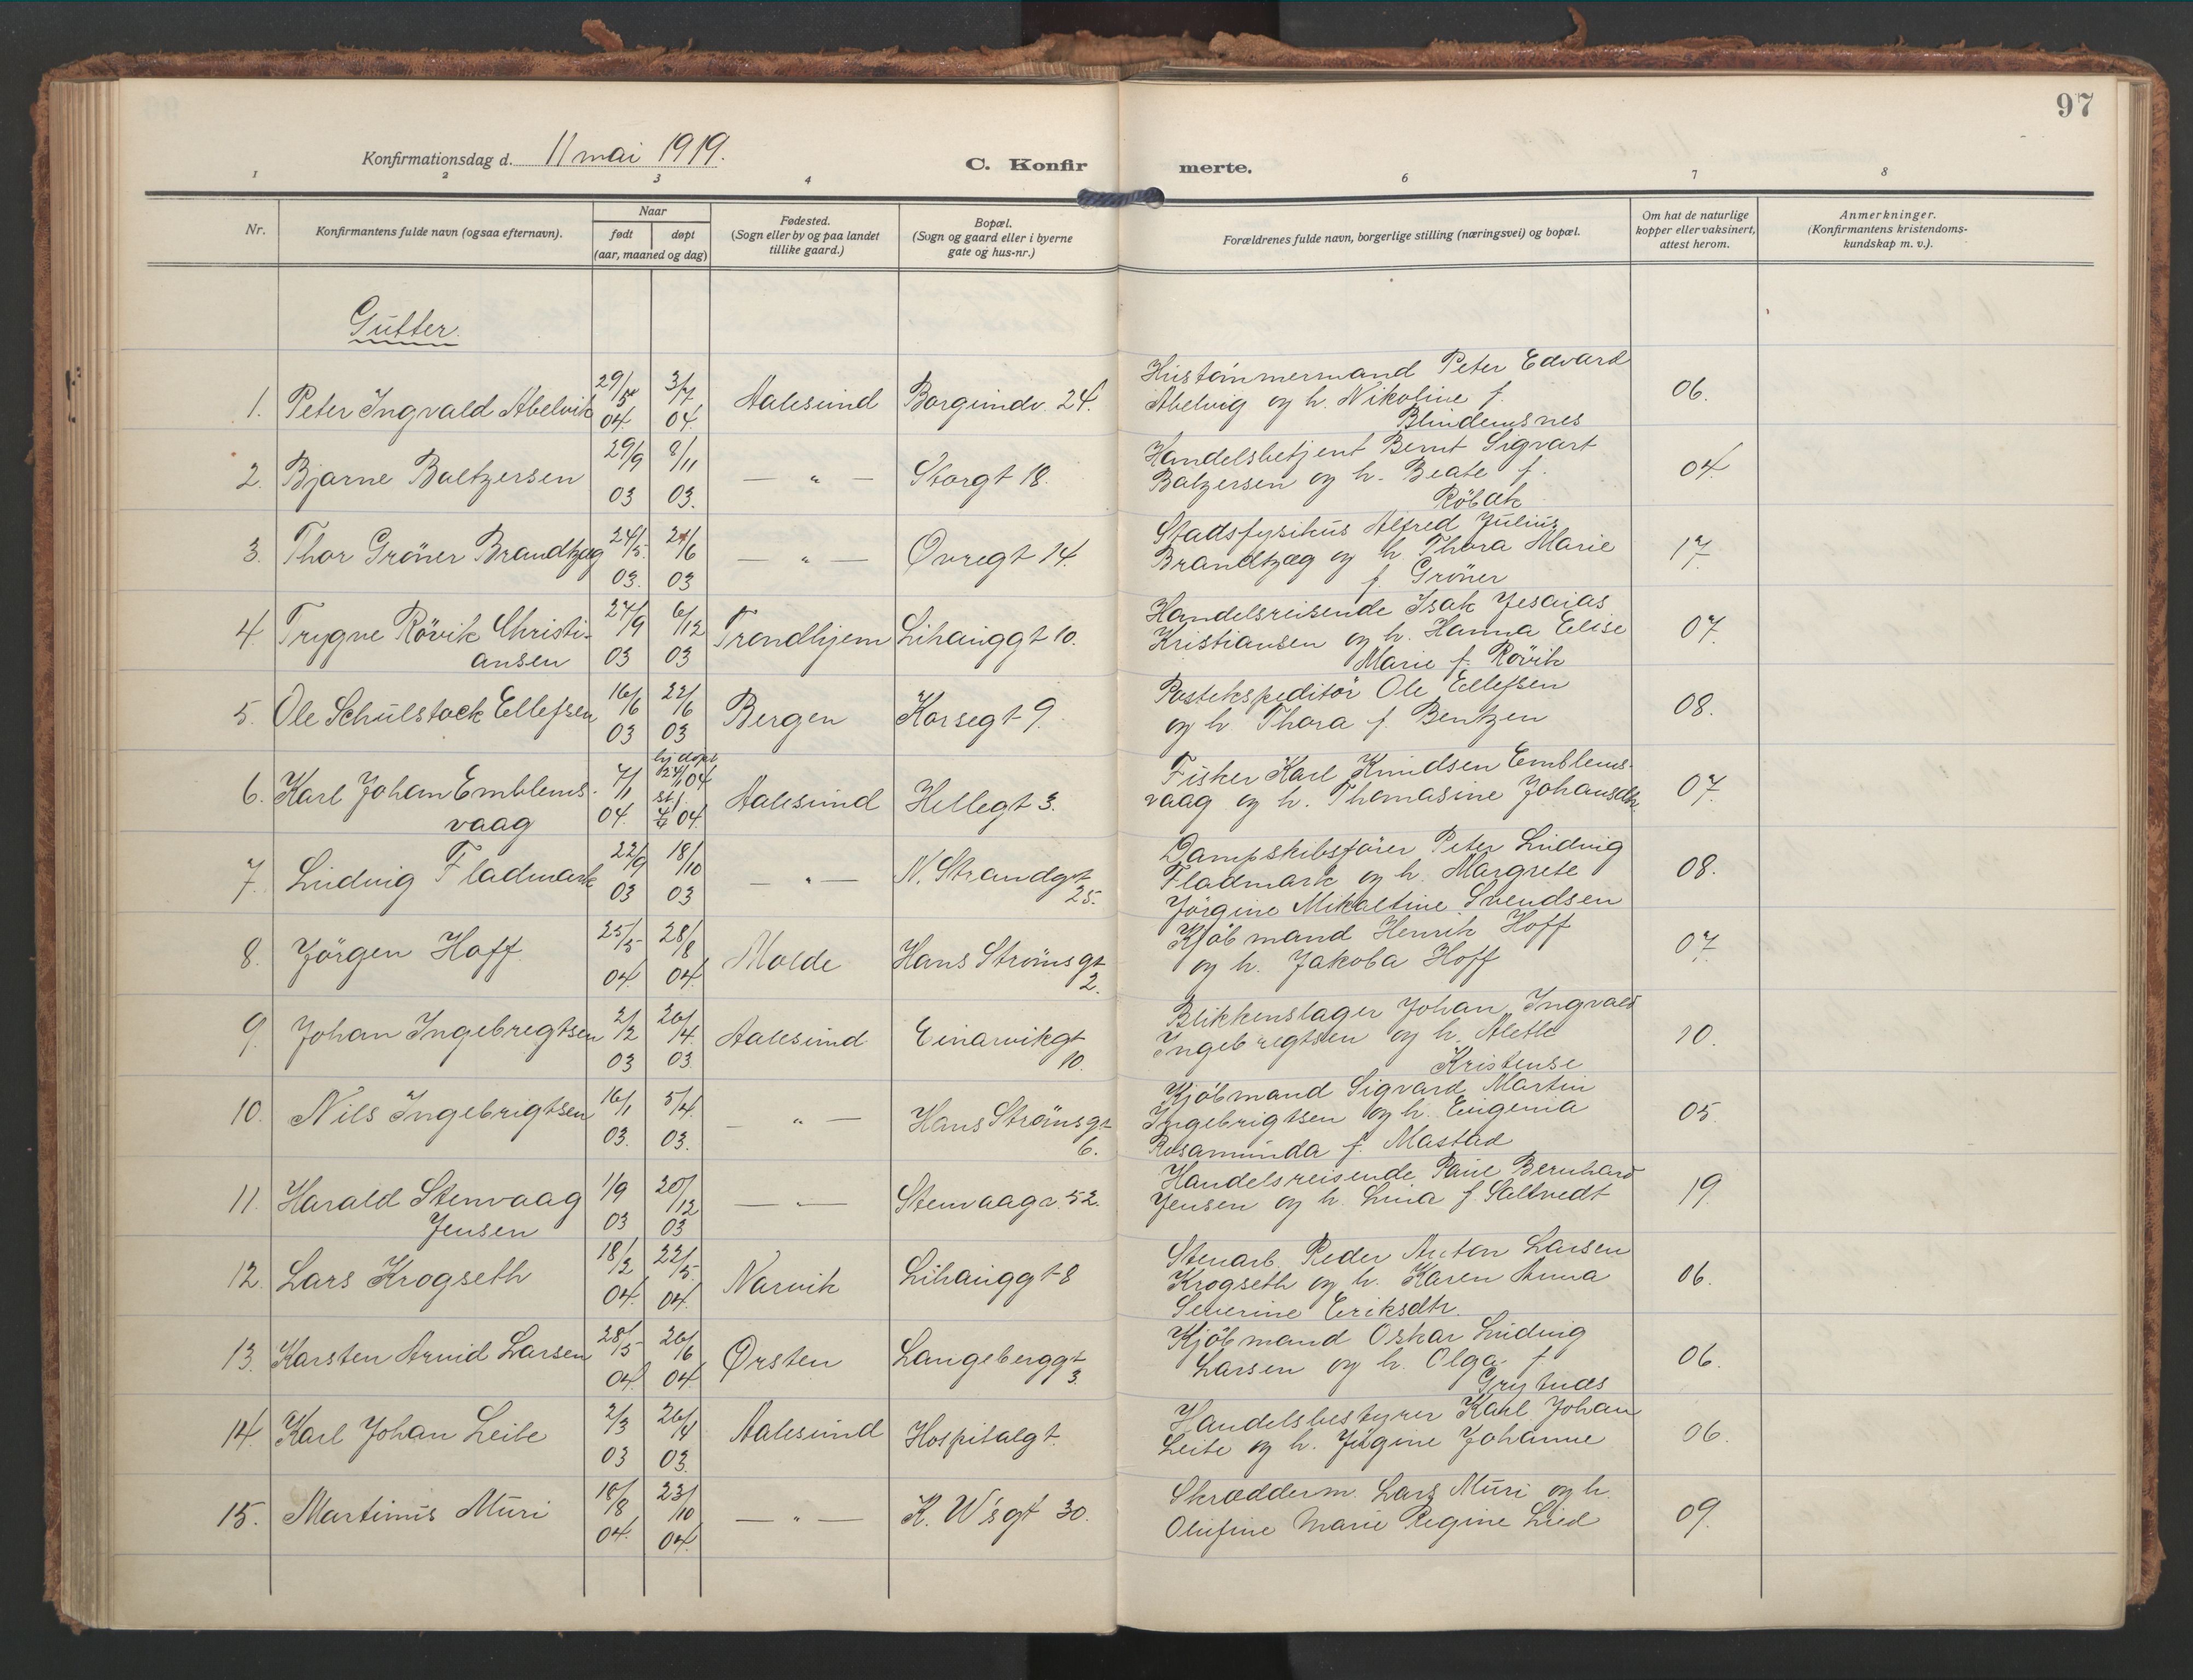 97
Konfirmationsdag d. 11 mai 1919.
C. Konfir merte.
1 2 3 4 6 7 8
Nr.
Konfirmantens fulde navn (ogsaa efternavn).
Naar
født døpt
(aar, maaned og dag)
Fødested.
(Sogn eller by og paa landet
tillike gaard.)
Bopæl.
(Sogn og gaard eller i byerne
gate og hus-nr.)
Forældrenes fulde navn, borgerlige stilling (næringsvei) og bopæl.
Om hat de naturlige
kopper eller vaksinert,
attest herom.
Anmerkninger.
(Konfirmantens kristendoms-
kundskap m. v.).
Gutter.
1. Peter Ingvald Abelvik 29/5 04. 3/7 04. Aalesund Borgundv. 24. Hustømmermand Peter Edvard
Abelvig og h. Nikoline f.
Blindemsnes 06.
2. Bjarne Baltzersen 29/9 03 8/11 03. — " — Storgt 18. Handelsbetjent Bernt Sigvart
Balzersen og h. Beate f.
Röbæk 04.
3. Thor Gröner Brandtzæg 24/5. 03. 21/6 03 — " — Øvregt 14. Stadsfysikus Alfred Julius
Brandtzæg og h. Thora Marie
f. Gröner 17.
4. Trygve Rövik Christi-
ansen 27/9 03 6/12 03 Trondhjem Lihauggt 10. Handelsreisende Isak Jesaias
Kristiansen og h. Hanna Elise
Marie f. Rövik 07.
5. Ole Schulstock Ellefsen 16/6 03 22/6 03 Bergen Korsegt 9. Postekspeditör Ole Ellefsen
og h Thora f. Bentzen 08.
6. Karl Johan Emblems-
vaag 7/1 04. hj. döpt 24/1 04 st. 04. Aalesund Hellegt 3. Fisker Karl Knudsen Emblems-
vaag og h. Thomasine Johansdtr 07.
7. Ludvig Fladmark 22/9 03 18/10 03 — " — N. Strandgt
25. Dampskibsförer Peter Ludvig
Fladmark og h. Margrete
Jörgine Mikaline Svendsen 08.
8. Jörgen Hoff 25/5 04. 28/8 04. Molde Hans Ströms gt
2. Kjöbmand Henrik Hoff
og h. Jakoba Hoff 07.
9. Johan Ingebregtsen 2/2 03 26/4. 03. Aalesund Einarvikgt
10. Blikkenslager Johan Ingvald
Ingebregtsen og h. Alette
Kristense 10.
10. Nils Ingebrigtsen 16/1 03. 5/4. 03. — " — Hans Ströms gt
6. Kjöbmand Sigvard Martin
Ingebrigtsen og h. Eugenia
Rosamunda f. Mastad 05.
11. Harald Stenvaag
Jensen 1/9 03 20/12 03 — " — Stenvaagv. 52. Handelsreisende Paul Bernhard
Jensen og h. Lina f. Saltvedt 19.
12. Lars Krogseth 18/2 04. 22/5. 04. Narvik Lihauggt 8 Stenarb. Peder Anton Larsen
Krogseth og h. Karen Anna
Severine Eriksdtr. 06.
13. Karsten Arvid Larsen 28/5 04. 26/6 04. Ørsten Langeberggt
3. Kjöbmand Oskar Ludvig
Larsen og h. Olga f.
Grytnes 06.
14. Karl Johan Leite 2/3 03 26/4 03. Aalesund Hospitalgt. Handelsbestyrer Karl Johan
Leite og h. Jörgine Johanne 06.
15. Martinus Muri 18/8 04. 23/10 04. — " — K. W's gt 30. Skrædderm. Lars Muri og h.
Olufine Marie Regine Lied 09.